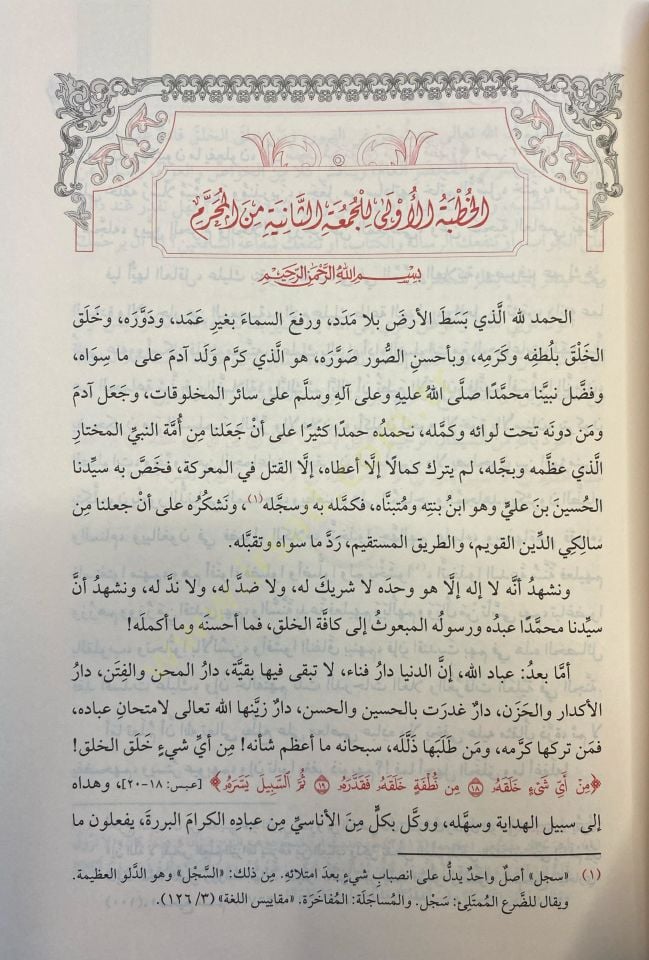 الخُطْبَةُ الأُوْلَى لِلْجُمُعَةِ الثَّانِيَةِ مِنَ المُحَرَّمِ
بِسْمِ اللهِ الرَّحْمٰنِ الرَّحِيْمِ
الحمد لله الَّذي بَسَطَ الأرضَ بلا مَدَد، ورفعَ السماءَ بغيرِ عَمَد، ودوَّرَه، وخَلَق
الخَلْقَ بلُطفِه وكَرَمِه، وبأحسنِ الصُّور صَوَّرَه، هو الَّذي كرَّم وَلَد آدمَ على ما سِوَاه،
وفضَّل نبيَّنا محمَّدًا صلَّى اللهُ عليهِ وعلى آلهِ وسلَّم على سائر المخلوقات، وجَعَل آدمَ
ومَن دونَه تحت لوائه وكمَّله، نحمدُه حمدًا كثيرًا على أنْ جَعَلنا مِن أُمَّة النبيِّ المختارِ
الَّذي عظَّمه وبجَّله، لم يترك كمالًا إلَّا أعطاه، إلَّا القتل في المعركة، فخَصَّ به سيِّدنا
الحُسينَ بنَ عليٍّ وهو ابنُ بنتِه ومُتبنَّاه، فكمَّله به وسجَّله(١)، ونَشكُرُه على أنْ جعلنا مِن
سالِكِي الدِّين القويم، والطريق المستقيم، رَدَّ ما سواه وتقبَّله.
ونشهدُ أنَّه لا إله إلَّا هو وحدَه لا شريكَ له، ولا ضدَّ له، ولا ندَّ له، ونشهدُ أنَّ
سيِّدنا محمَّدًا عبدُه ورسولُه المبعوثُ إلى كافَّة الخلق، فما أحسنَه وما أكملَه!
أمَّا بعدُ: عباد الله، إنَّ الدنيا دارُ فناء، لا تبقى فيها بقيَّة، دارُ المحن والفِتَن، دارُ
الأكدار والحَزَن، دارٌ غدرَت بالحسين والحسن، دارٌ زيَّنها الله تعالى لامتحانِ عباده،
فمَن تركها كرَّمه، ومَن طَلَبَها ذَلَّلَه، سبحانه ما أعظم شأنه! مِن أيِّ شيءٍ خَلَق الخلق!
﴿مِنْ أَيِّ شَيْءٍ خَلَقَهُۥ ١٨ مِن نُّطْفَةٍ خَلَقَهُۥ فَقَدَّرَهُۥ ١٩ ثُمَّ ٱلسَّبِيلَ يَسَّرَهُۥ﴾ [عبس: ١٨-٢٠]، وهداه
إلى سبيل الهداية وسهَّله، ووكَّل بكلٍّ مِنَ الأناسيِّ مِن عبادِه الكرامَ البررةَ، يفعلون ما
(١) «سجل» أصلٌ واحدٌ يدلُّ على انصبابِ شيءٍ بعدَ امتلائهِ. مِن ذلك: «السَّجْل» وهو الدَّلو العظيمة.
ويقال للضَّرع المُمتَلِئ: سَجْل. والمُسَاجَلَة: المُفاخَرَة. «مقاييس اللغة» (٣/ ١٢٦).